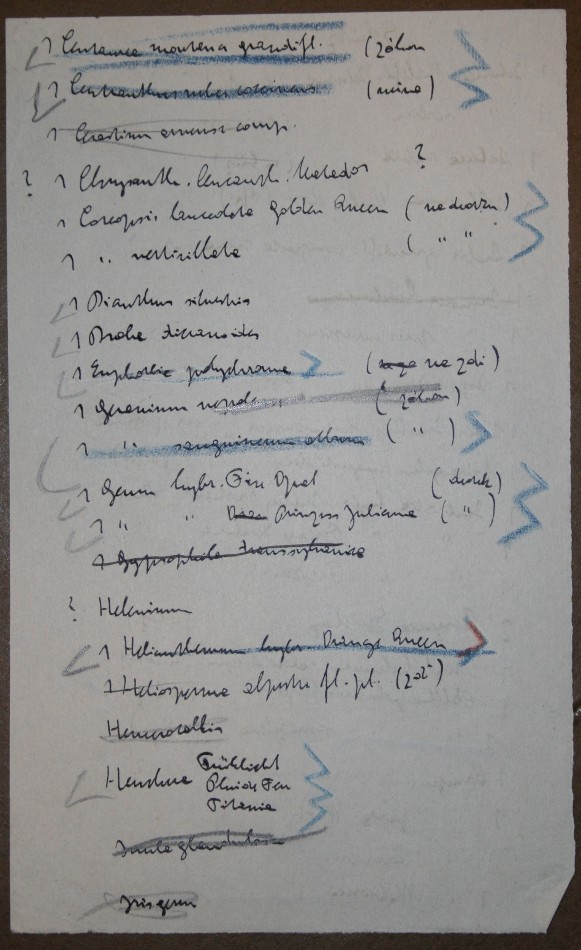 1 Centaurea montana grandifl. (záhon
1 Centranthus ruber coccineus (mína)
1 Cerastium arvense comp.
? 1 Chrysanth. leucanth. Matador ?
1 Coreopsis lanceolata Golden Queen ( )
1 " verticillata ( " "
1 Dianthus silvestris
1 Draba
1 Euphorbia polychroma ( na zdi )
1 Geranium (záhon)
1 " sanguineum album ( " )
1 Geum hybr. Fire Opal ( )
1 " " Prinzess Juliana ( " )
1 Gypsophila transsylvanica
? Helenium
1 Helianthemum hybr Orange Queen
1 Heliosperma alpestre fl. pl. (zdi)
Hemerocallis
Heuchera Frühlicht
Pluie de Feu
Titania
Inula glandulosa